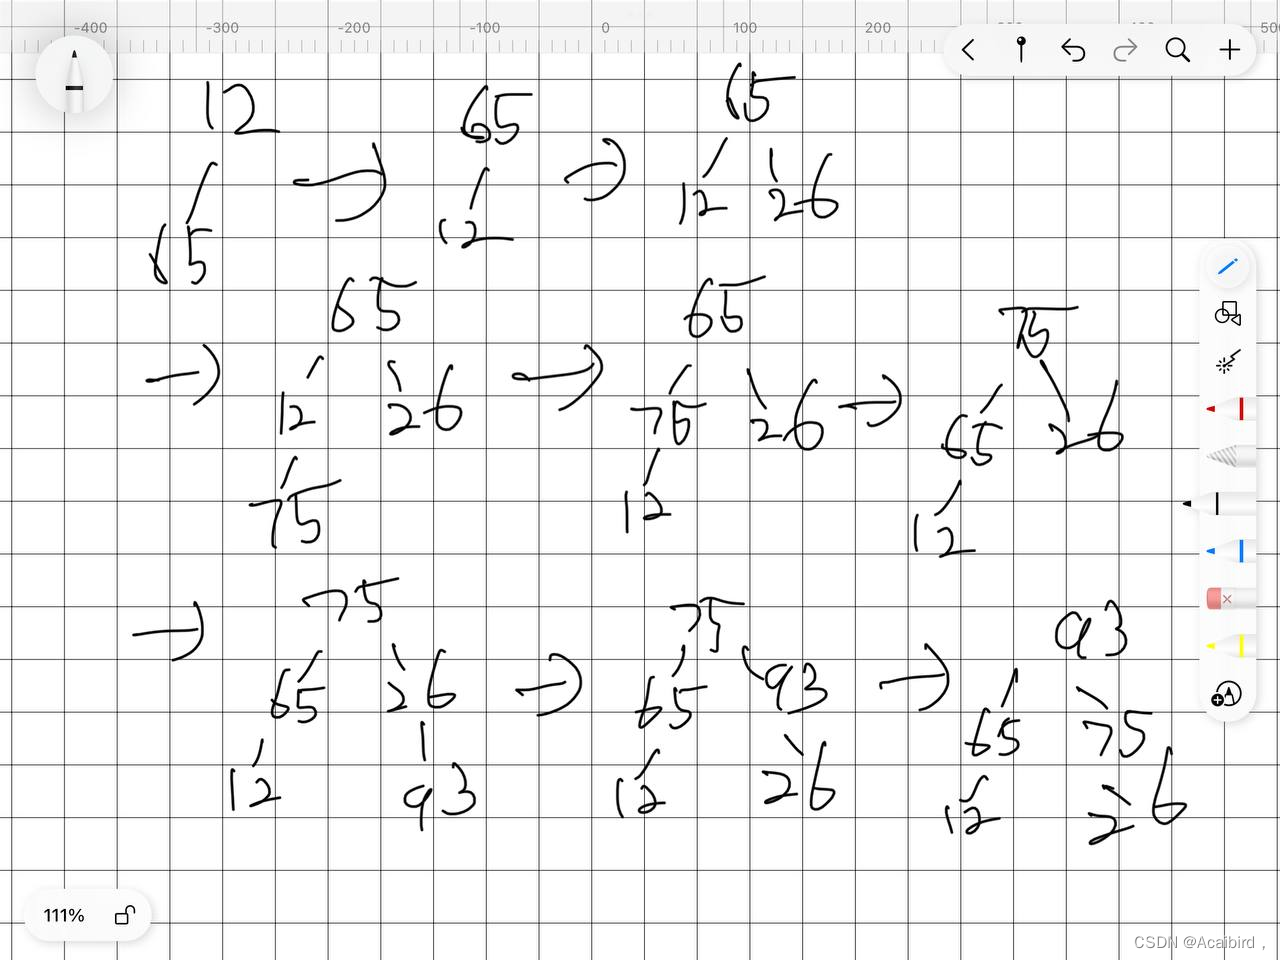 -400 -300 -200 -100 0 100 200 500
12 65 65
65 12 12 26
65 65 75
12 26 75 26 65 26
75 12 12
75 75 93
65 26 65 93 65 75
12 93 12 26 12 26
111%
CSDN @Acaibird ,